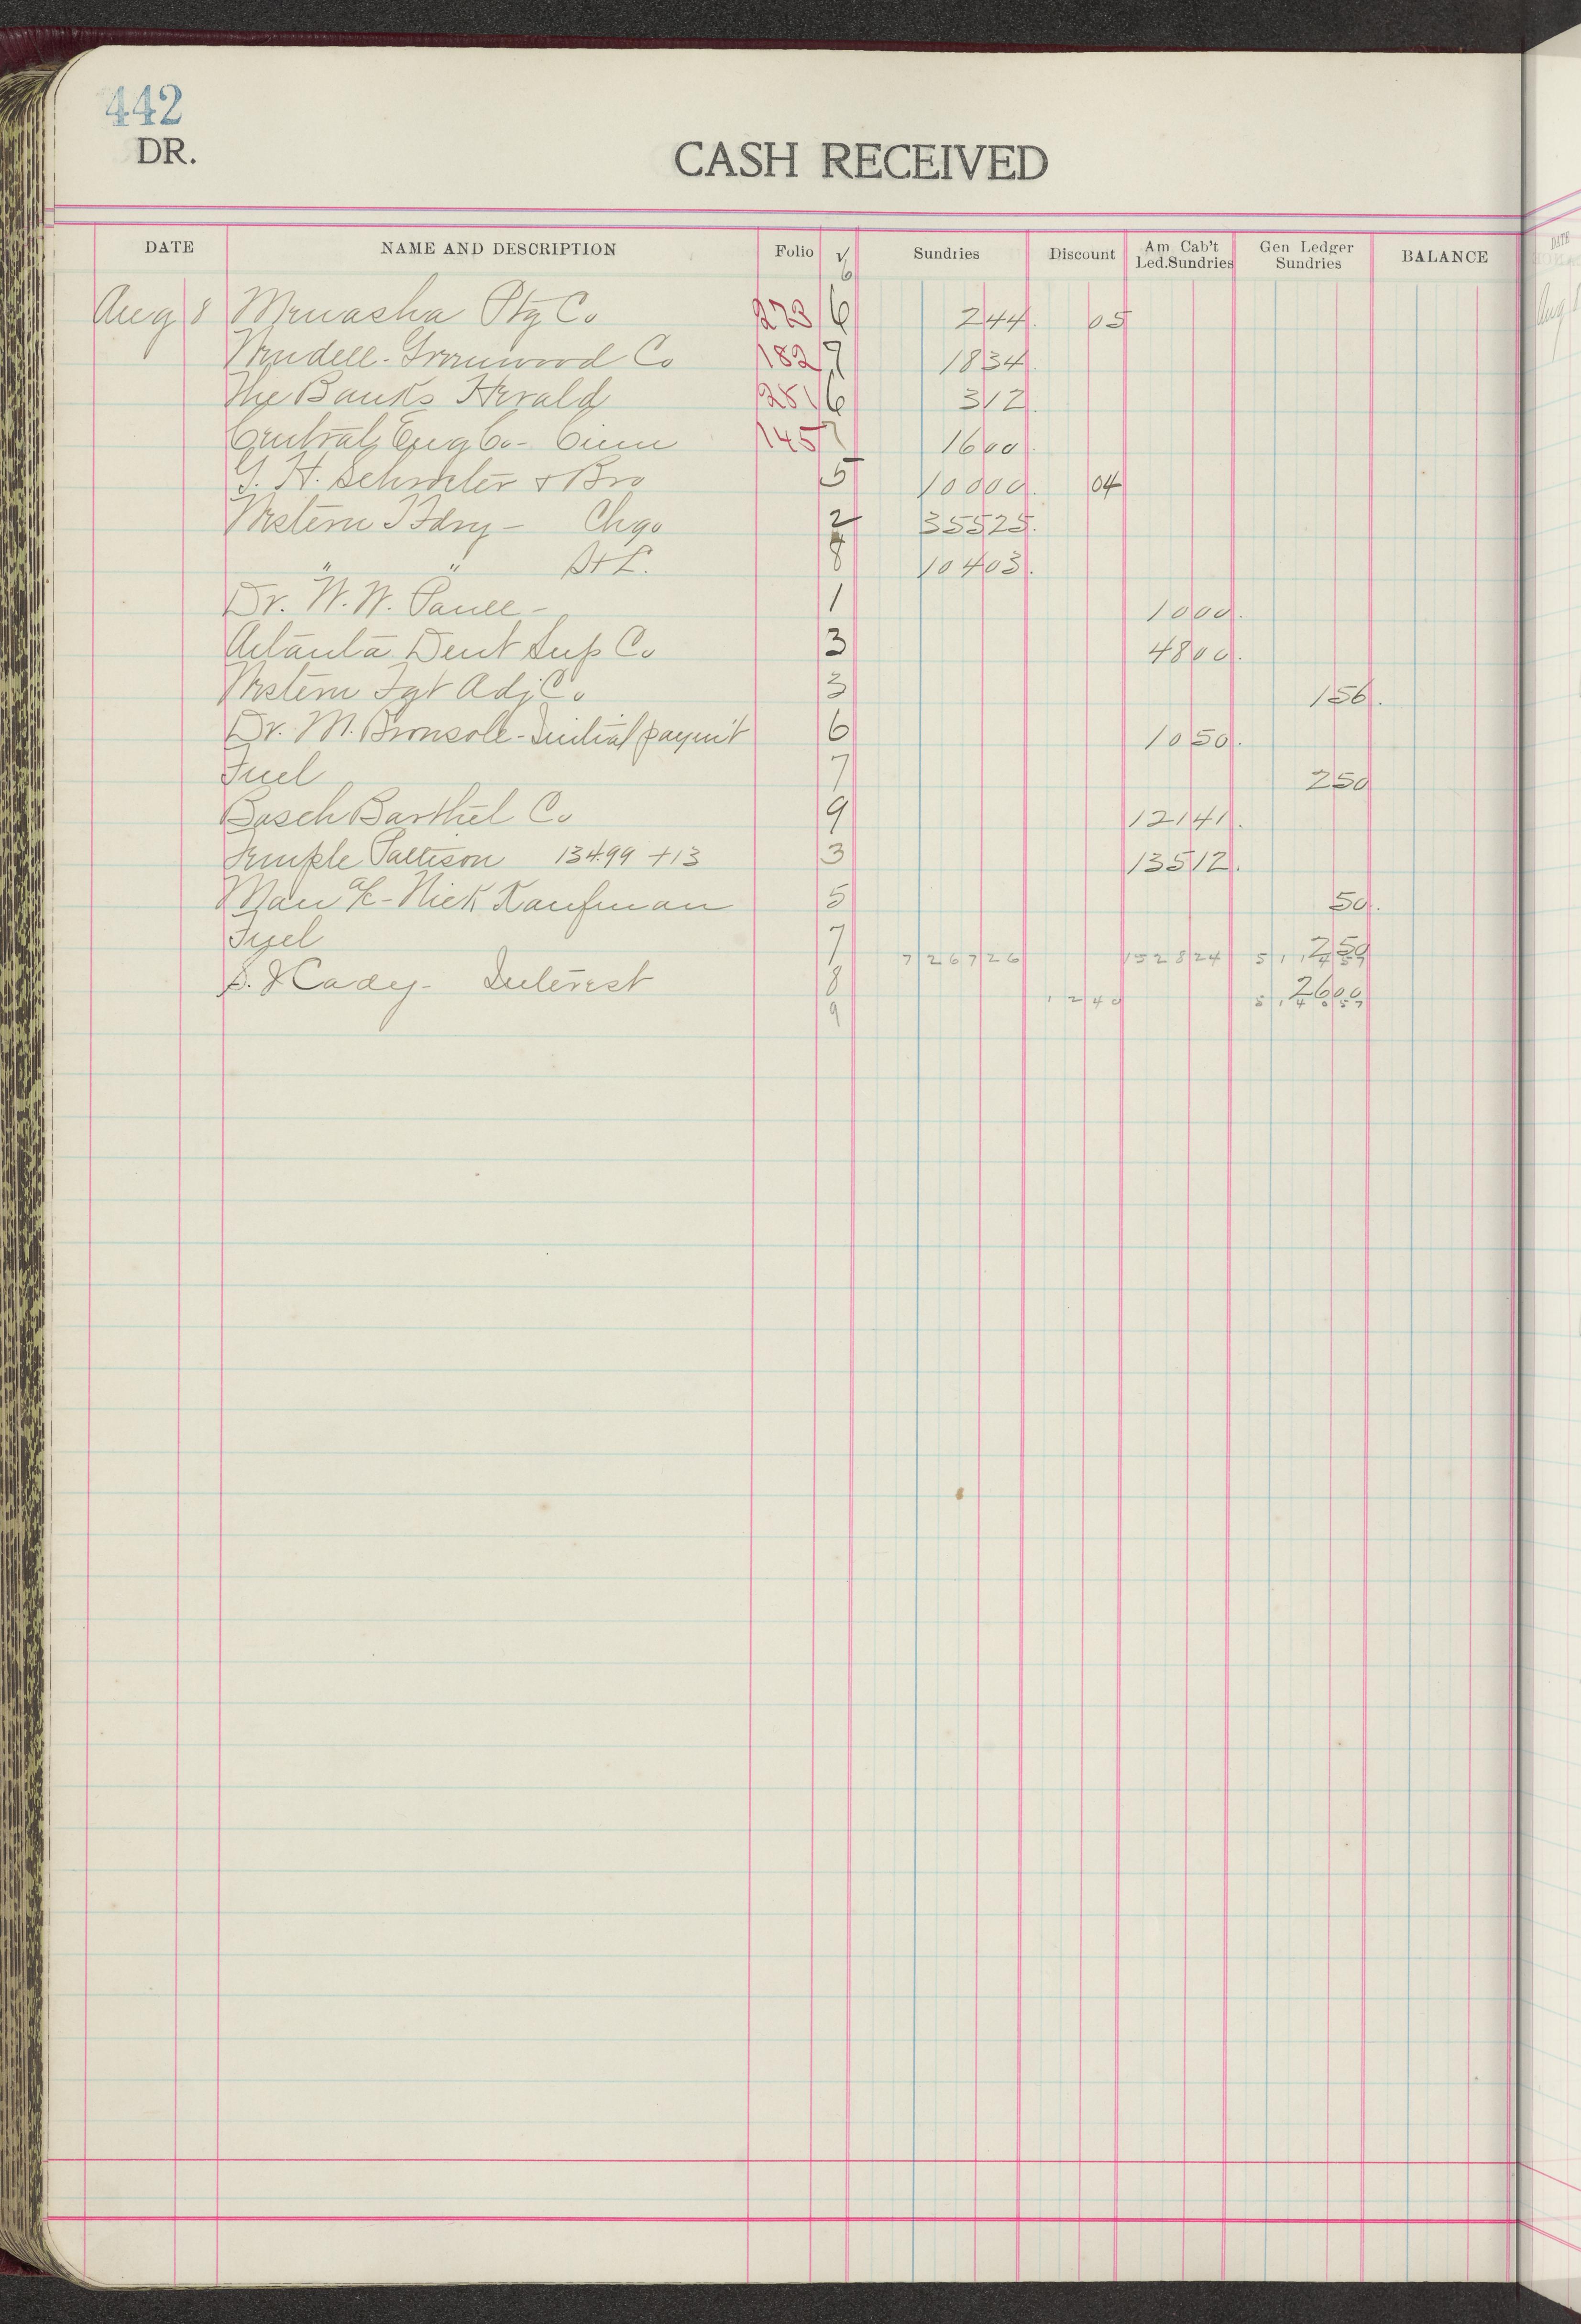 442
DR.
CASH RECEIVED
DATE NAME AND DESCRIPTION Folio √ Sundries Discount Am Cab't Led.Sundries Gen Ledger Sundries BALANCE
6
Aug 8 Menasha Ptg Co 273 6 244. 05
Wendell-Greenwood Co 182 7 1834.
The Banks Herald 281 6 312.
Central Eng Co- Cinn 145 7 1600.
G. H. Schroeter & Bro 5 10000. 04
Western Fdry - Chgo 2 35525.
" " St L. 8 10403.
Dr. W. W. - 1 1000.
Atlanta Dent Sup Co 3 4800.
Western Fgt Adj Co 3 156.
Dr. M. - Initial paym't 6 1050.
Fuel 7 250
Bosch Barthel Co 9 12141.
Temple Pattison 134.99 +13 3 13512.
Man a/c - Nick Kaufman 5 50.
Fuel 7 250
726726 152824
Cady - Interest 8 2600
1240
9